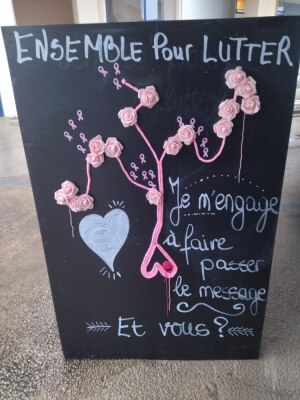 ENSEMBLE Pour LUTTER
Je m'engage
à faire
passer
le message
Et vous ?